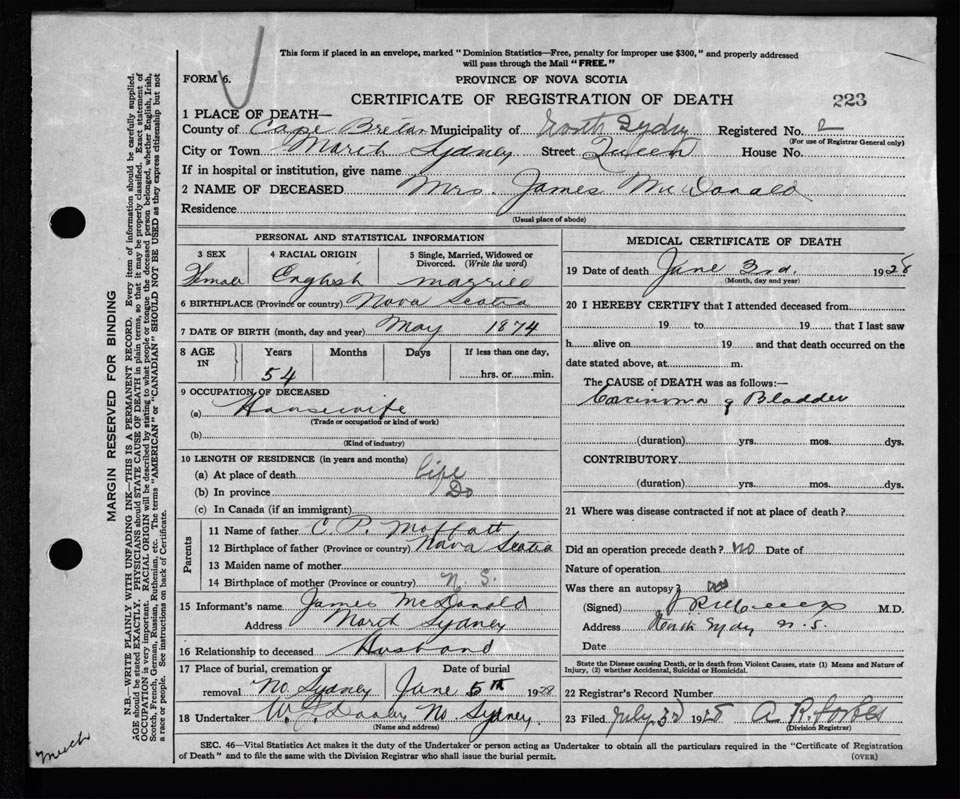 This form if placed in an envelope, marked "Dominion Statistics—Free, penalty for improper use $300," and properly addressed
will pass through the Mail "FREE."
FORM 6.
PROVINCE OF NOVA SCOTIA
CERTIFICATE OF REGISTRATION OF DEATH
223
1 PLACE OF DEATH—
County of Cape Breton Municipality of North Sydney Registered No. 2
(For use of Registrar General only)
City or Town North Sydney Street Queen House No.
If in hospital or institution, give name
2 NAME OF DECEASED Mrs. James McDonald
Residence
(Usual place of abode)
PERSONAL AND STATISTICAL INFORMATION
3 SEX 4 RACIAL ORIGIN 5 Single, Married, Widowed or Divorced. (Write the word)
Female English married
6 BIRTHPLACE (Province or country) Nova Scotia
7 DATE OF BIRTH (month, day and year) May 1874
8 AGE IN Years Months Days If less than one day,
54 hrs. or min.
9 OCCUPATION OF DECEASED
(a) Housewife
(Trade or occupation or kind of work)
(b)
(Kind of industry)
10 LENGTH OF RESIDENCE (in years and months)
(a) At place of death life
(b) In province Do
(c) In Canada (if an immigrant)
Parents
11 Name of father C. P. Moffatt
12 Birthplace of father (Province or country) Nova Scotia
13 Maiden name of mother
14 Birthplace of mother (Province or country) N. S.
15 Informant's name James McDonald
Address North Sydney
16 Relationship to deceased Husband
17 Place of burial, cremation or removal No Sydney
Date of burial June 5th 1928
18 Undertaker W. No Sydney.
(Name and address)
MEDICAL CERTIFICATE OF DEATH
19 Date of death June 3rd. 1928
(Month, day and year)
20 I HEREBY CERTIFY that I attended deceased from
19 to 19 that I last saw
h alive on 19 and that death occurred on the
date stated above, at m.
The CAUSE OF DEATH was as follows:—
Carcinoma of Bladder
(duration) yrs. mos. dys.
CONTRIBUTORY
(duration) yrs. mos. dys.
21 Where was disease contracted if not at place of death?
Did an operation precede death? No Date of
Nature of operation
Was there an autopsy?
(Signed) M.D.
Address North Sydney N. S.
Date
State the Disease causing Death, or in death from Violent Causes, state (1) Means and Nature of
Injury, (2) whether Accidental, Suicidal or Homicidal.
22 Registrar's Record Number
23 Filed July 3rd 1928 A R. Forbes
(Division Registrar)
SEC. 46—Vital Statistics Act makes it the duty of the Undertaker or person acting as Undertaker to obtain all the particulars required in the "Certificate of Registration
of Death" and to file the same with the Division Registrar who shall issue the burial permit.
(OVER)
MARGIN RESERVED FOR BINDING
N.B.—WRITE PLAINLY WITH UNFADING INK—THIS IS A PERMANENT RECORD. Every item of information should be carefully supplied.
AGE should be stated EXACTLY. PHYSICIANS should STATE CAUSE OF DEATH in plain terms, so that it may be properly classified. Exact statement of
OCCUPATION is very important. RACIAL ORIGIN will be described by stating to what people or tongue the deceased person belonged, whether English, Irish,
Scotch, French, German, Russian, Ruthenian, etc. The terms "AMERICAN" or "CANADIAN" SHOULD NOT BE USED as they express citizenship but not
a race or people. See instructions on back of Certificate.